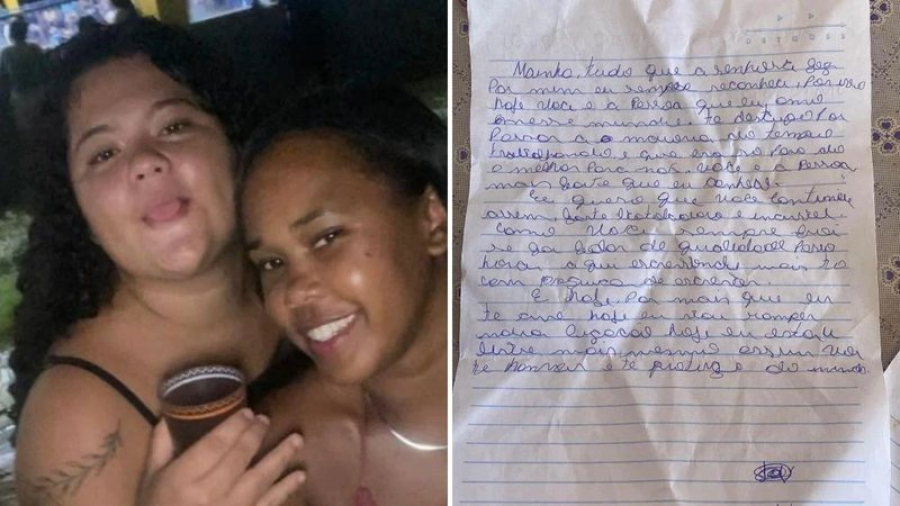 Mainha, tudo que a senhora fez
Por mim eu sempre reconheci, Por isso
hoje voce e a Pessoa que eu amo
nesse mundo. te desculpo Por
Passar a o maioria do tempo
trabalhando, e que era so Para da
o melhor Para nos. voce e a Pessoa
mais forte que eu conheci.
Eu quero que voce continue
assim, forte trabalhadora e incrivel.
Como voce sempre foi
horas, a qui escrevendo mais to
com preguiça de escrever.
E hoje, Por mais que eu
te ame hoje eu vou romper
nossa ligacao hoje eu
mais mesmo assim vou
te e te proteg e do mundo